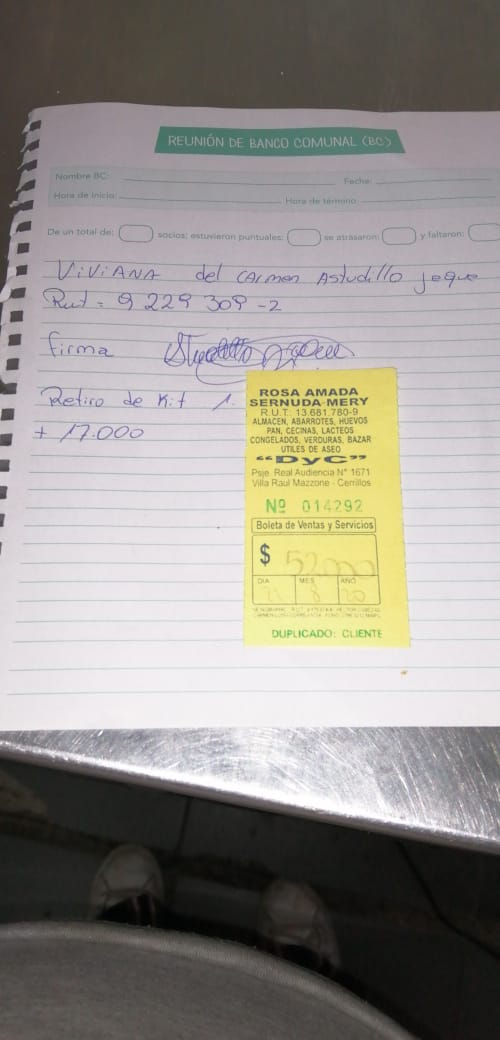 REUNIÓN DE BANCO COMUNAL (BC)
Nombre BC: Fecha:
Hora de inicio: Hora de término:
De un total de: socios; estuvieron puntuales: se atrasaron: y faltaron:
ViViANA del CArmen Astudillo jeque
Rut = 9 229 309 -2
firma
Retiro de Kit 1.
+ 17.000
ROSA AMADA
SERNUDA MERY
R.U.T. 13.681.780-9
ALMACEN, ABARROTES, HUEVOS
PAN, CECINAS, LACTEOS
CONGELADOS, VERDURAS, BAZAR
UTILES DE ASEO
"DyC"
Psje. Real Audiencia N° 1671
Villa Raul Mazzone - Cerrillos
Nº 014292
Boleta de Ventas y Servicios
$ 52000
DIA MES AÑO
21 8 20
DUPLICADO: CLIENTE